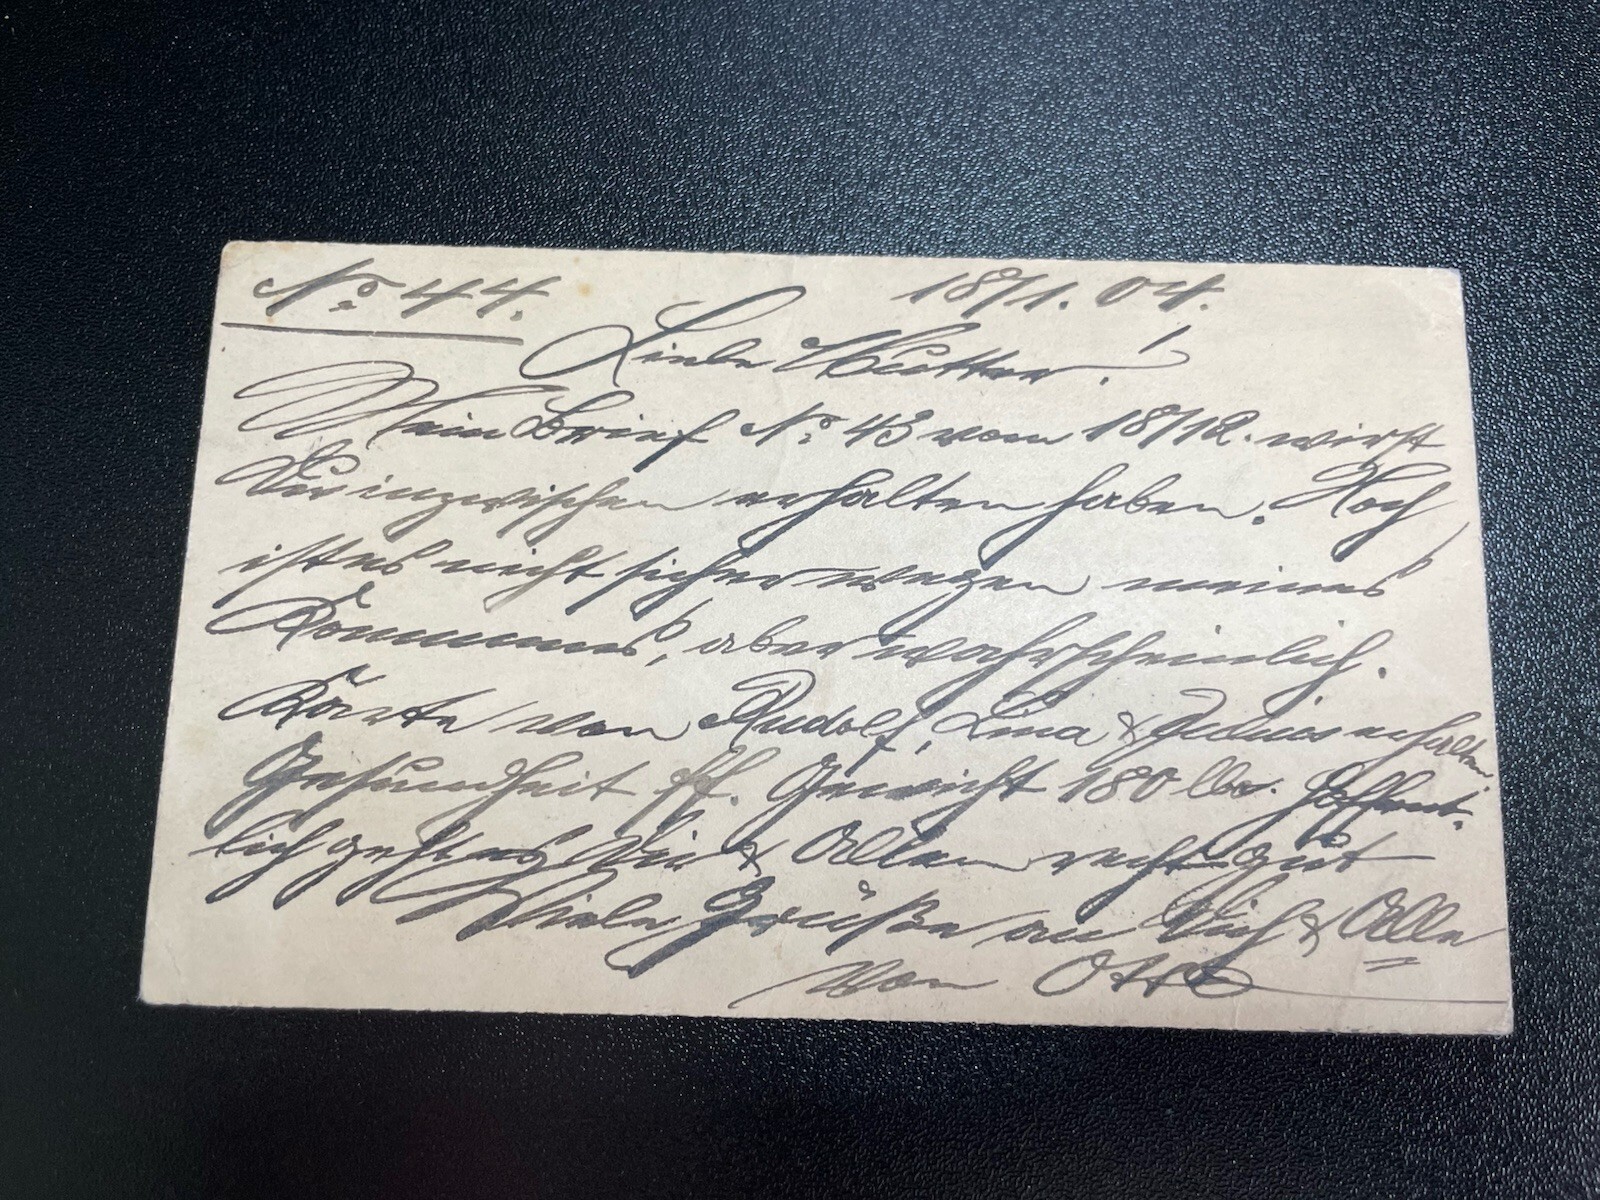 No. 44. 18/1. 04.
Liebe Mutter!
Mein Brief No. 43 vom 18/12. wirst
Du inzwischen erhalten haben. Noch
ist es nicht sicher wegen meines
Kommens, aber wahrscheinlich.
Karte von Rudolf, Lina & erhalten
Gesundheit ff. Gewicht 180 lbs. Hoffent-
lich geht es Dir & Allen recht gut
Viele Grüße an Dich & Alle
von Otto